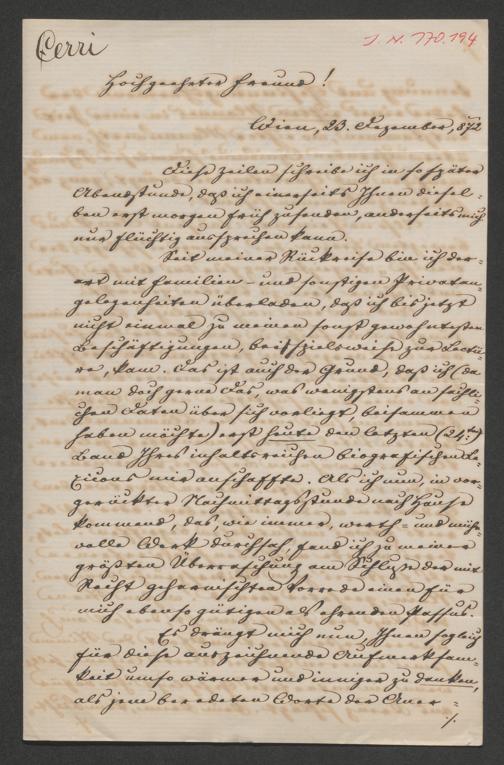 Cerri
I. N. 170.194
Hochgeehrter Freund!
Wien, 23. Dezember, 872
Diese Zeilen schreibe ich in so später
Abendstunde, daß ich einerseits Ihnen diesel-
ben erst morgen früh zusenden, anderseits mich
nur flüchtig aussprechen kann.
Seit meiner Rückreise bin ich der-
art mit Familien- und sonstigen Privatan-
gelegenheiten überladen, daß ich bis jetzt
nicht einmal zu meinen sonst gewohntesten
Beschäftigungen, beispielsweise zur Lectü-
re, kam. Das ist auch der Grund, daß ich (da
man doch gerne Das, was wenigstens an sachli-
chen Daten über sich vorliegt, beisammen
haben möchte) erst heute den letzten (24ten)
Band Ihres inhaltsreichen biografischen Le-
xicons mir anschaffte. Als ich nun, in vor-
gerückter Nachmittagsstunde nach Hause
kommend, das, wie immer, werth- und mühe-
volle Werk durchsah, fand ich zu meiner
größten Überraschung am Schlusse der mit
Recht geharnischten Vorrede einen für
mich ebenso gütigen als ehrenden Passus.
Es drängt mich nun, Ihnen sogleich
für diese auszeichnende Aufmerksam-
keit umso wärmer und inniger zu danken,
als jene beredeten Worte der Aner-
./.